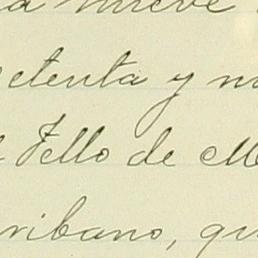 a nueve
etenta y nu
l Tello de Me
ribano, qu